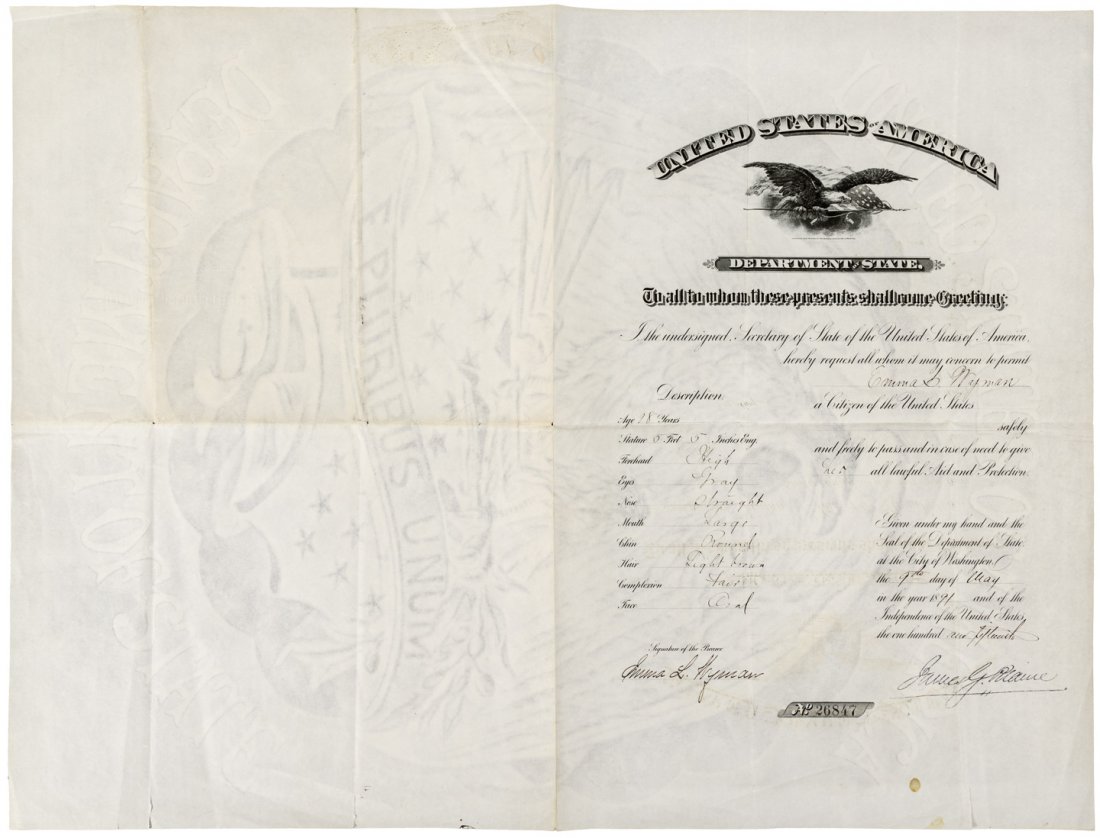 UNITED STATES OF AMERICA
DEPARTMENT OF STATE.
To all to whom these presents shall come Greeting:
I the undersigned, Secretary of State of the United States of America,
hereby request all whom it may concern to permit
Emma L. Wyman
a Citizen of the United States
safely
and freely to pass and in case of need to give
her all lawful Aid and Protection.
Description
Age 18 Years
Stature 5 Feet 5 Inches Eng.
Forehead High
Eyes Gray
Nose Straight
Mouth Large
Chin Round
Hair Light brown
Complexion Fair
Face Oval
Signature of the Bearer
Emma L. Wyman
Given under my hand and the
Seal of the Department of State,
at the City of Washington,
the 9th day of May
in the year 1891 and of the
Independence of the United States
the one hundred and fifteenth
James G. Blaine
No 26847
E PLURIBUS UNUM